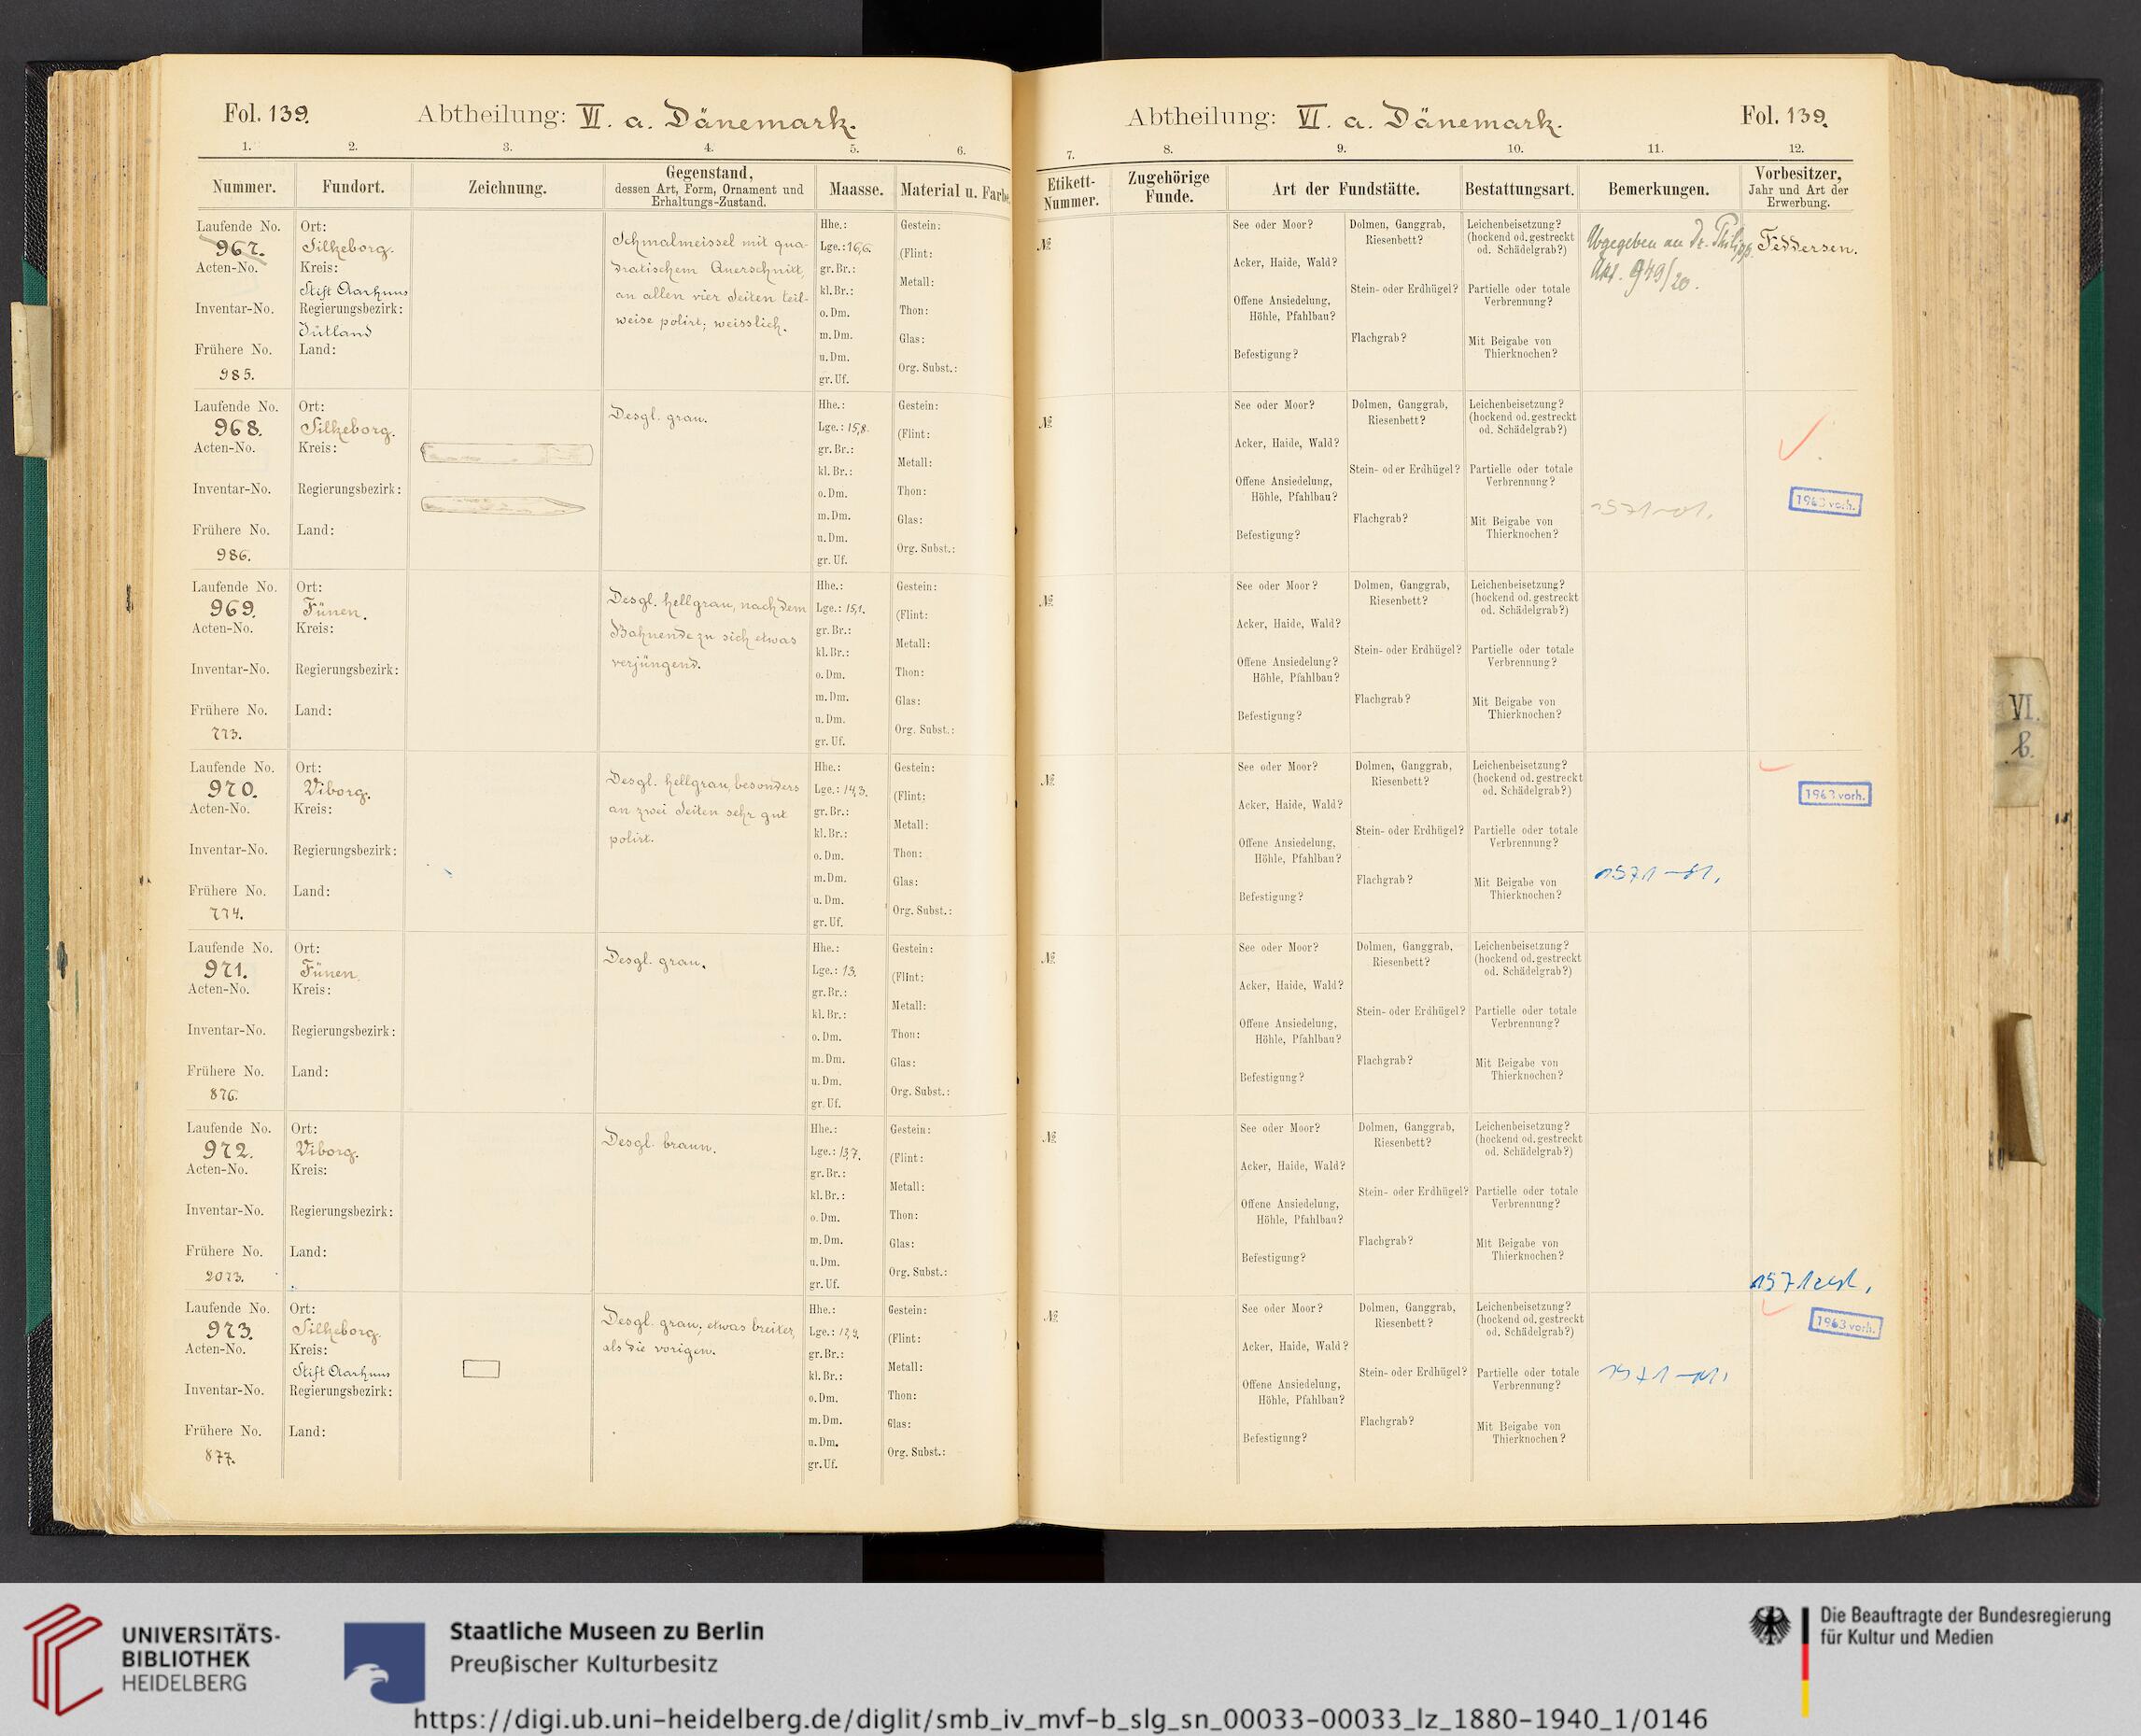 Fol. 139.
Abtheilung: VI. a. Dänemark.
1. 2. 3. 4. 5. 6.
Nummer. Fundort. Zeichnung. Gegenstand, dessen Art, Form, Ornament und Erhaltungs-Zustand. Maasse. Material u. Farbe.
Laufende No. 967.
Acten-No.
Inventar-No.
Frühere No. 985.
Ort: Silkeborg.
Kreis: Stift Aarhuus
Regierungsbezirk: Jütland
Land:
Schmalmeissel mit qua-
dratischem Querschnitt,
an allen vier Seiten teil-
weise polirt; weisslich.
Hhe.:
Lge.: 16,6.
gr. Br.:
kl. Br.:
o. Dm.
m. Dm.
u. Dm.
gr. Uf.
Gestein:
(Flint:
Metall:
Thon:
Glas:
Org. Subst.:
Laufende No. 968.
Acten-No.
Inventar-No.
Frühere No. 986.
Ort: Silkeborg.
Kreis:
Regierungsbezirk:
Land:
Desgl. grau.
Hhe.:
Lge.: 15,8.
gr. Br.:
kl. Br.:
o. Dm.
m. Dm.
u. Dm.
gr. Uf.
Gestein:
(Flint:
Metall:
Thon:
Glas:
Org. Subst.:
Laufende No. 969.
Acten-No.
Inventar-No.
Frühere No. 773.
Ort: Fünen.
Kreis:
Regierungsbezirk:
Land:
Desgl. hellgrau, nach dem
Bahnende zu sich etwas
verjüngend.
Hhe.:
Lge.: 15,1.
gr. Br.:
kl. Br.:
o. Dm.
m. Dm.
u. Dm.
gr. Uf.
Gestein:
(Flint:
Metall:
Thon:
Glas:
Org. Subst.:
Laufende No. 970.
Acten-No.
Inventar-No.
Frühere No. 774.
Ort: Viborg.
Kreis:
Regierungsbezirk:
Land:
Desgl. hellgrau, besonders
an zwei Seiten sehr gut
polirt.
Hhe.:
Lge.: 14,3.
gr. Br.:
kl. Br.:
o. Dm.
m. Dm.
u. Dm.
gr. Uf.
Gestein:
(Flint:
Metall:
Thon:
Glas:
Org. Subst.:
Laufende No. 971.
Acten-No.
Inventar-No.
Frühere No. 876.
Ort: Fünen.
Kreis:
Regierungsbezirk:
Land:
Desgl. grau.
Hhe.:
Lge.: 13.
gr. Br.:
kl. Br.:
o. Dm.
m. Dm.
u. Dm.
gr. Uf.
Gestein:
(Flint: )
Metall:
Thon:
Glas:
Org. Subst.:
Laufende No. 972.
Acten-No.
Inventar-No.
Frühere No. 2073.
Ort: Viborg.
Kreis:
Regierungsbezirk:
Land:
Desgl. braun.
Hhe.:
Lge.: 13,7.
gr. Br.:
kl. Br.:
o. Dm.
m. Dm.
u. Dm.
gr. Uf.
Gestein:
(Flint: )
Metall:
Thon:
Glas:
Org. Subst.:
Laufende No. 973.
Acten-No.
Inventar-No.
Frühere No. 877.
Ort: Silkeborg.
Kreis: Stift Aarhuus
Regierungsbezirk:
Land:
Desgl. grau; etwas breiter,
als die vorigen.
Hhe.:
Lge.:
gr. Br.:
kl. Br.:
o. Dm.
m. Dm.
u. Dm.
gr. Uf.
Gestein:
(Flint: )
Metall:
Thon:
Glas:
Org. Subst.:
Abtheilung: VI. a. Dänemark.
Fol. 139.
7. 8. 9. 10. 11. 12.
Etikett-Nummer. Zugehörige Funde. Art der Fundstätte. Bestattungsart. Bemerkungen. Vorbesitzer, Jahr und Art der Erwerbung.
№
See oder Moor?
Acker, Haide, Wald?
Offene Ansiedelung,
Höhle, Pfahlbau?
Befestigung?
Dolmen, Ganggrab,
Riesenbett?
Stein- oder Erdhügel?
Flachgrab?
Leichenbeisetzung?
(hockend od. gestreckt
od. Schädelgrab?)
Partielle oder totale
Verbrennung?
Mit Beigabe von
Thierknochen?
Abgegeben an Dr. Philipp.
Akt. 949/20.
Feddersen.
№
See oder Moor?
Acker, Haide, Wald?
Offene Ansiedelung,
Höhle, Pfahlbau?
Befestigung?
Dolmen, Ganggrab,
Riesenbett?
Stein- oder Erdhügel?
Flachgrab?
Leichenbeisetzung?
(hockend od. gestreckt
od. Schädelgrab?)
Partielle oder totale
Verbrennung?
Mit Beigabe von
Thierknochen?
1963 vorh.
№
See oder Moor?
Acker, Haide, Wald?
Offene Ansiedelung?
Höhle, Pfahlbau?
Befestigung?
Dolmen, Ganggrab,
Riesenbett?
Stein- oder Erdhügel?
Flachgrab?
Leichenbeisetzung?
(hockend od. gestreckt
od. Schädelgrab?)
Partielle oder totale
Verbrennung?
Mit Beigabe von
Thierknochen?
№
See oder Moor?
Acker, Haide, Wald?
Offene Ansiedelung,
Höhle, Pfahlbau?
Befestigung?
Dolmen, Ganggrab,
Riesenbett?
Stein- oder Erdhügel?
Flachgrab?
Leichenbeisetzung?
(hockend od. gestreckt
od. Schädelgrab?)
Partielle oder totale
Verbrennung?
Mit Beigabe von
Thierknochen?
1963 vorh.
№
See oder Moor?
Acker, Haide, Wald?
Offene Ansiedelung,
Höhle, Pfahlbau?
Befestigung?
Dolmen, Ganggrab,
Riesenbett?
Stein- oder Erdhügel?
Flachgrab?
Leichenbeisetzung?
(hockend od. gestreckt
od. Schädelgrab?)
Partielle oder totale
Verbrennung?
Mit Beigabe von
Thierknochen?
№
See oder Moor?
Acker, Haide, Wald?
Offene Ansiedelung,
Höhle, Pfahlbau?
Befestigung?
Dolmen, Ganggrab,
Riesenbett?
Stein- oder Erdhügel?
Flachgrab?
Leichenbeisetzung?
(hockend od. gestreckt
od. Schädelgrab?)
Partielle oder totale
Verbrennung?
Mit Beigabe von
Thierknochen?
№
See oder Moor?
Acker, Haide, Wald?
Offene Ansiedelung,
Höhle, Pfahlbau?
Befestigung?
Dolmen, Ganggrab,
Riesenbett?
Stein- oder Erdhügel?
Flachgrab?
Leichenbeisetzung?
(hockend od. gestreckt
od. Schädelgrab?)
Partielle oder totale
Verbrennung?
Mit Beigabe von
Thierknochen?
1963 vorh.
VI.
b.
UNIVERSITÄTS-
BIBLIOTHEK
HEIDELBERG
Staatliche Museen zu Berlin
Preußischer Kulturbesitz
Die Beauftragte der Bundesregierung
für Kultur und Medien
https://digi.ub.uni-heidelberg.de/diglit/smb_iv_mvf-b_slg_sn_00033-00033_lz_1880-1940_1/0146